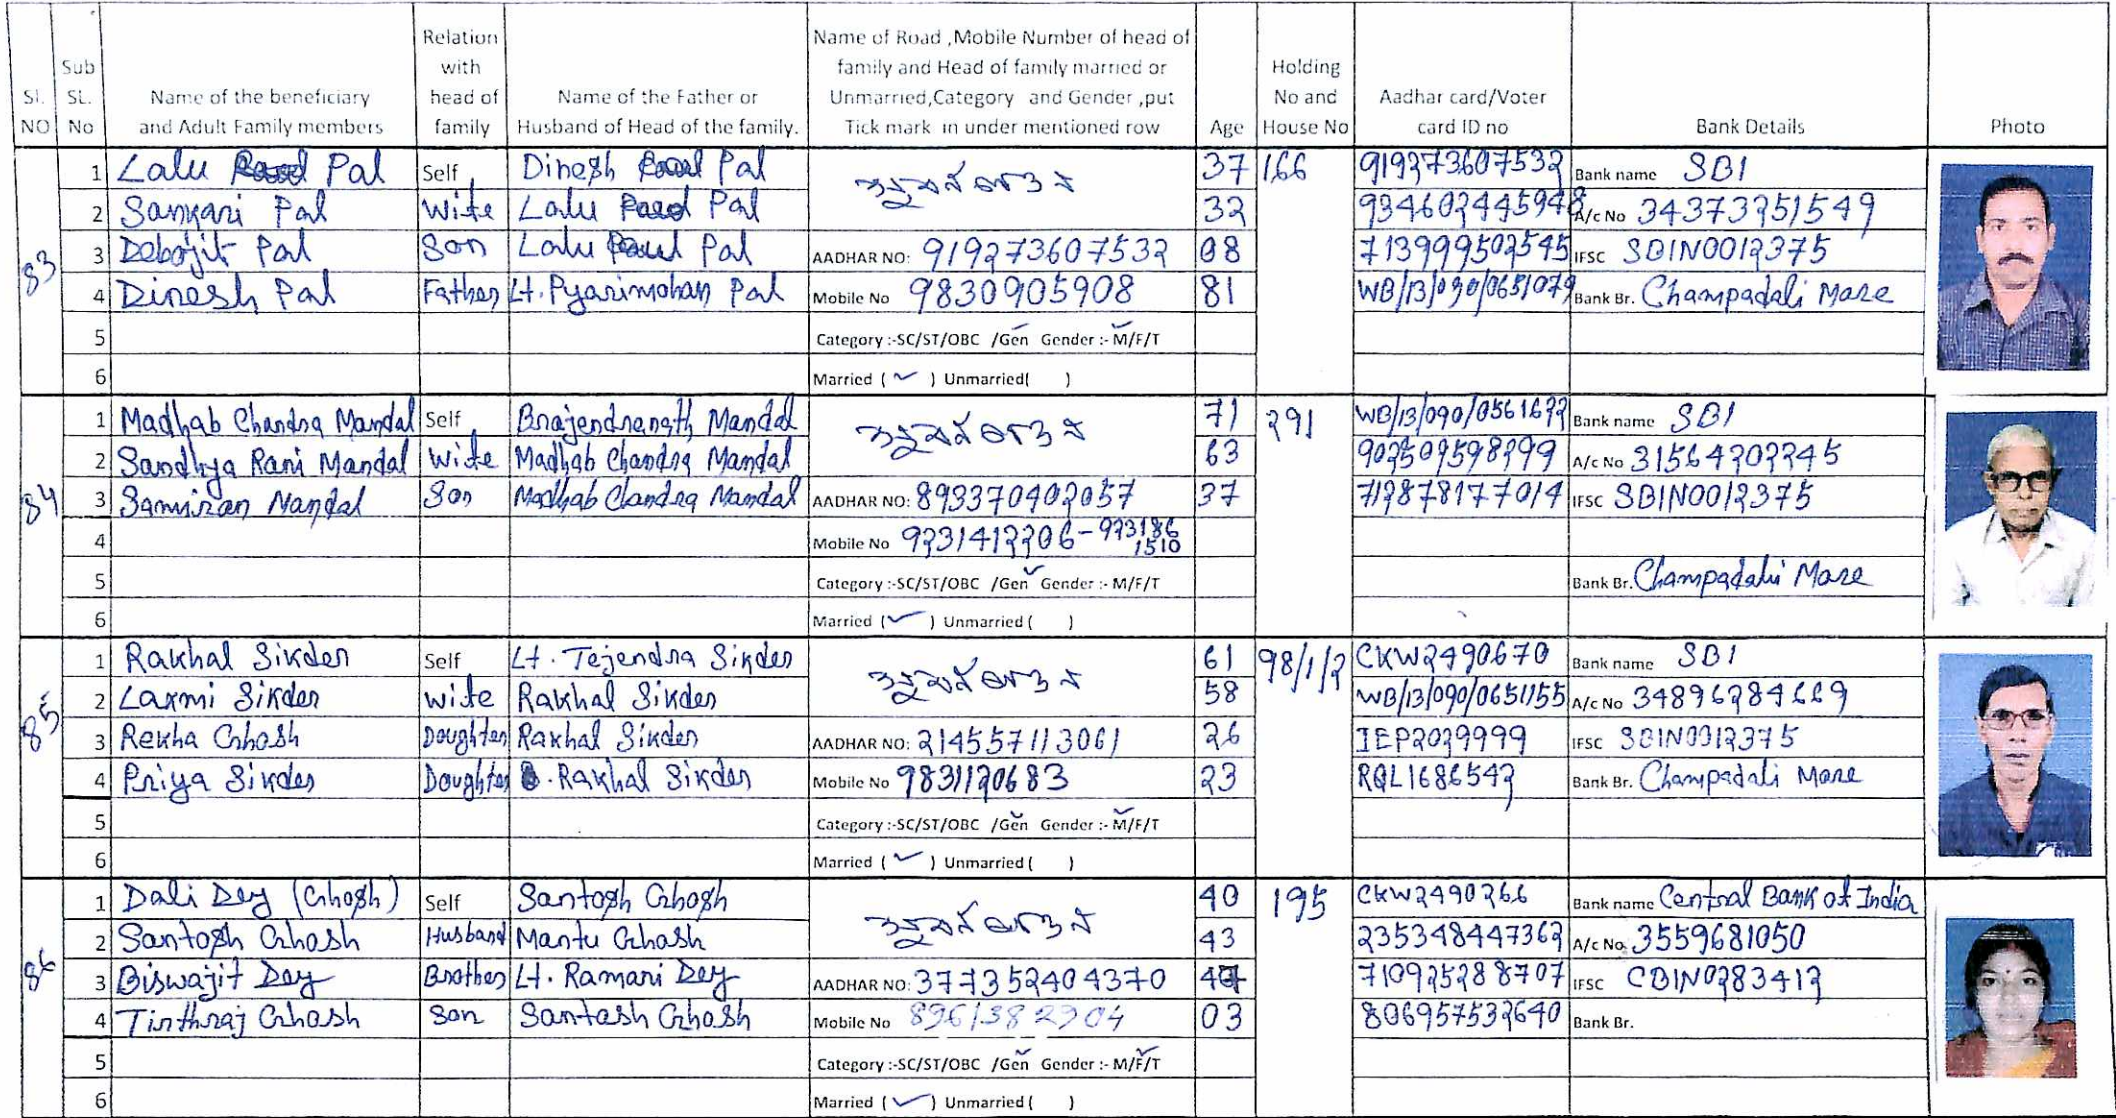 Sl. NO | Sub SL. No | Name of the beneficiary and Adult Family members | Relation with head of family | Name of the Father or Husband of Head of the family. | Name of Road ,Mobile Number of head of family and Head of family married or Unmarried,Category and Gender ,put Tick mark in under mentioned row | Age | Holding No and House No | Aadhar card/Voter card ID no | Bank Details | Photo
83
1 Lalu Pal Self Dinesh Pal 37 166 919273607532 Bank name SBI
2 Sankari Pal Wife Lalu Pal 32 934602445948 A/c No 34373251549
3 Debojit Pal Son Lalu Pal AADHAR NO: 919273607532 08 713999502545 IFSC SBIN0012375
4 Dinesh Pal Father Lt. Pyarimohan Pal Mobile No 9830905908 81 WB/13/090/0651079 Bank Br. Champadali More
5 Category :-SC/ST/OBC /Gen Gender :- M/F/T
6 Married ( ✓ ) Unmarried( )
84
1 Madhab Chandra Mandal Self Brajendranath Mandal 71 291 Bank name SBI
2 Sandhya Rani Mandal Wife Madhab Chandra Mandal 63 902509598299 A/c No 31564202245
3 Samiran Mandal Son Madhab Chandra Mandal AADHAR NO: 893370402057 37 712878177014 IFSC SBIN0012375
4 Mobile No 9231412206 - 9231861510
5 Category :-SC/ST/OBC /Gen Gender :- M/F/T Bank Br. Champadali More
6 Married ( ✓ ) Unmarried ( )
85
1 Rakhal Sikder Self Lt. Tejendra Sikder 61 98/1/2 CKW2490670 Bank name SBI
2 Laxmi Sikder Wife Rakhal Sikder 58 WB/13/090/0651155 A/c No 34896284669
3 Rekha Ghosh Doughter Rakhal Sikder AADHAR NO: 214557113061 26 IEP2029999 IFSC SBIN0012375
4 Priya Sikder Doughter Rakhal Sikder Mobile No 9831120683 23 RQL1686542 Bank Br. Champadali More
5 Category :-SC/ST/OBC /Gen Gender :- M/F/T
6 Married ( ✓ ) Unmarried ( )
86
1 Dali Dey (Ghosh) Self Santosh Ghosh 40 195 CKW2490266 Bank name Central Bank of India
2 Santosh Ghosh Husband Mantu Ghosh 43 235348447362 A/c No. 3559681050
3 Biswajit Dey Brother Lt. Ramani Dey AADHAR NO: 377352404370 710925288707 IFSC CBIN0283412
4 Tirthraj Ghosh Son Santosh Ghosh Mobile No 03 806957532640 Bank Br.
5 Category :-SC/ST/OBC /Gen Gender :- M/F/T
6 Married ( ✓ ) Unmarried ( )